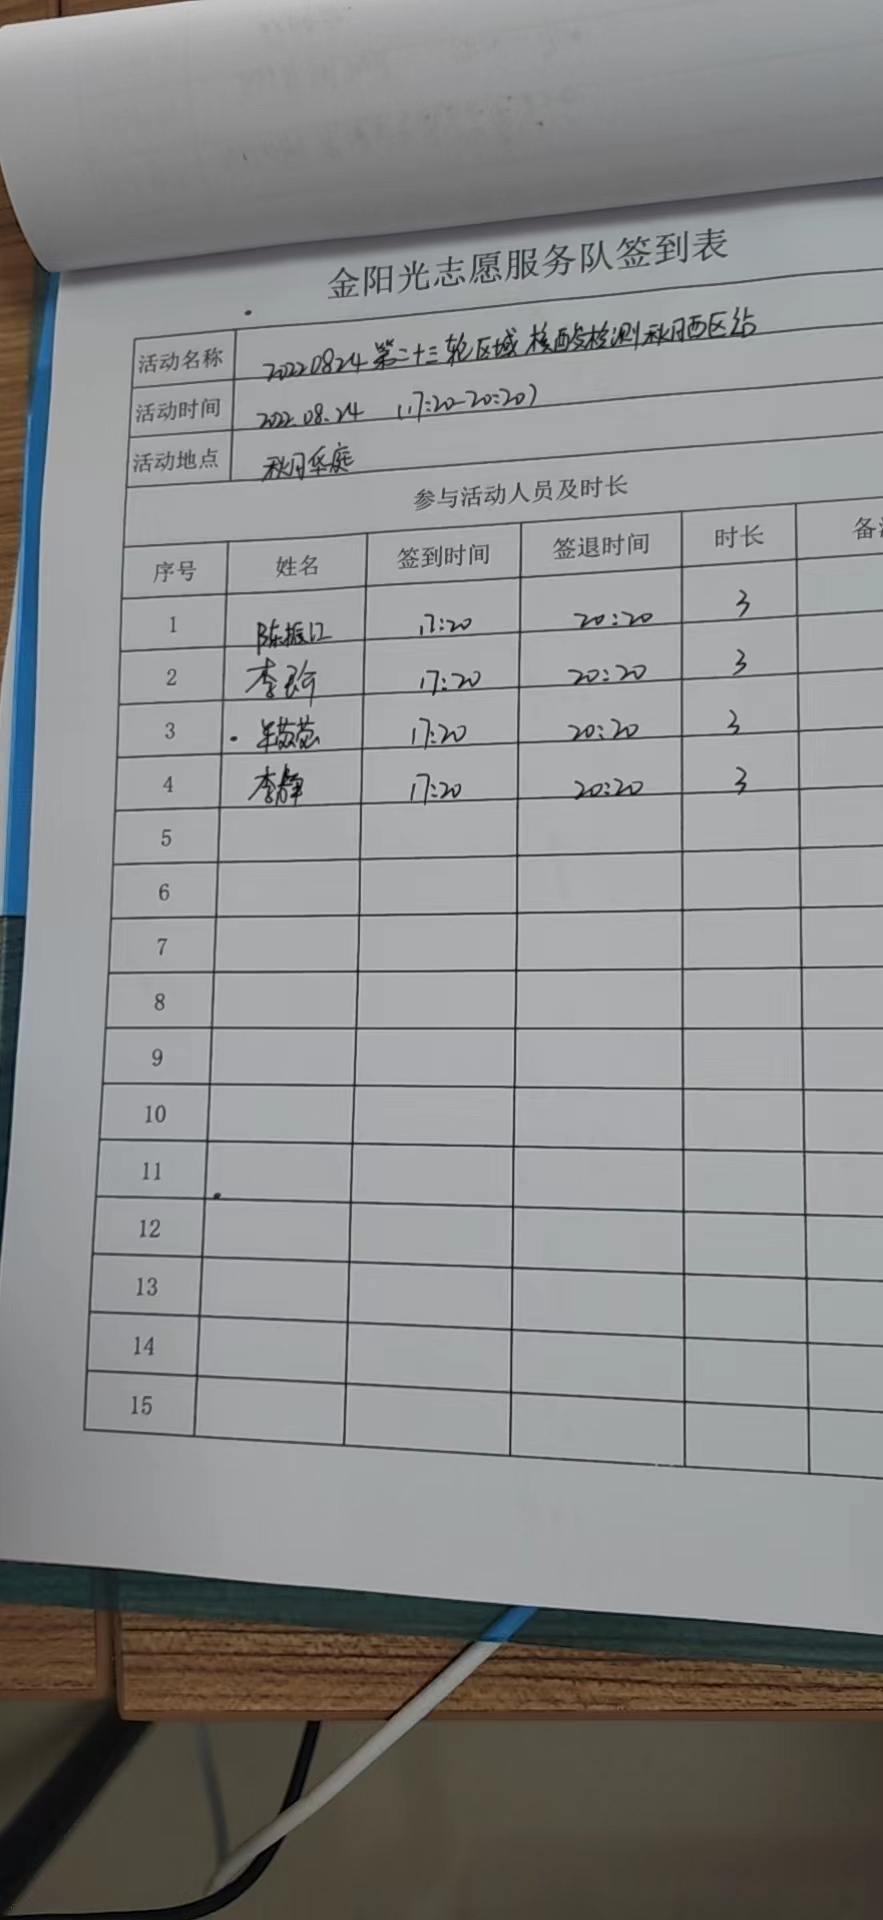 金阳光志愿服务队签到表
活动名称 20220824第二十三轮区域核酸检测秋月西区站
活动时间 2022.08.24 (17:20-20:20)
活动地点 秋月华庭
参与活动人员及时长
序号 姓名 签到时间 签退时间 时长 备
1 陈振江 17:20 20:20 3
2 李 17:20 20:20 3
3 17:20 20:20 3
4 李静 17:20 20:20 3
5
6
7
8
9
10
11
12
13
14
15